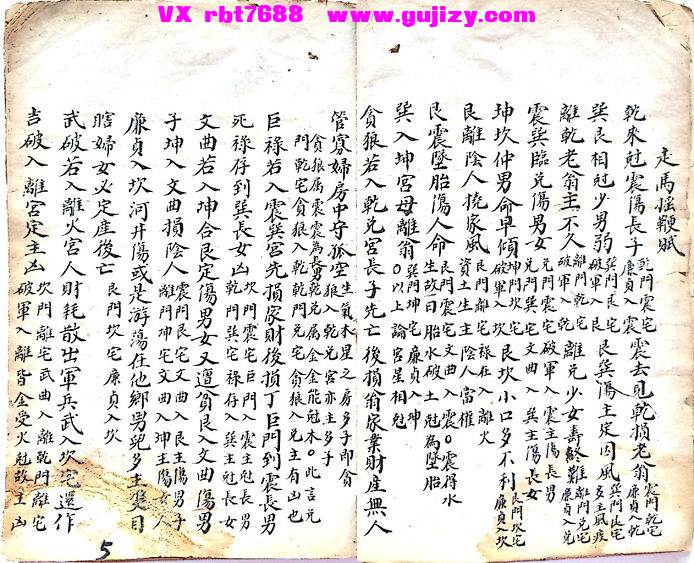 VX rbt7688 www.gujizy.com
走馬摇鞭賦
乾來尅震傷長子 乾門震宅 廉貞入震 震去見乾損老翁 震門乾宅 廉貞入乾
巽艮相尅少男弱 巽門艮宅 破軍入艮 艮巽傷主定因風
離乾老翁主不久 離門乾宅 破軍入乾 離兑少女壽難 離門兑宅 廉貞入兑
震巽臨兑傷男女 兑門震宅 破軍入震主傷長男 兑門巽宅 文曲入巽主傷長女
坤坎仲男命早傾 坤門坎宅 破軍入坎 艮坎小口多不利 艮門坎宅 廉貞入坎
艮離陰人撓家風 艮門離宅 禄存入離火 資土生土主陰人當權
艮震墜胎傷人命 艮門震宅 文曲入震○震得水 生故曰胎水破土尅為墜胎
巽入坤宮母離翁 巽門坤宅 廉貞入坤 ○以上論宮星相尅
貪狼若入乾兑宮長子先亡後損翁家業財産無人
管寡婦房中守孤空 生氣木星之房多子即貪
貪狼属震震為長男乾兑属金金能尅木○此言兑
門乾宅貪狼入乾乾門兑宅貪狼入兑主有凶也
巨禄若入震巽宮先損家財後損丁巨門到震長男
死禄存到巽長女凶 坎門震宅巨門入震主尅長男 乾門巽宅禄存入巽主尅長女
文曲若入坤合艮定傷男女又遭貧艮入文曲傷男
子坤入文曲損陰人 震門艮宅文曲入艮主傷男子 離門坤宅文曲入坤主傷女人
廉貞入坎河井傷或是游蕩在他鄉男児多主雙目
瞎婦女必定産後亡 艮門坎宅廉貞入坎
武破若入離火宮人財耗散出軍兵武入坎宅還作
吉破入離宮定主凶 坎門離宅武曲入離乾門離宅 破軍入離皆金受火尅故主凶
5